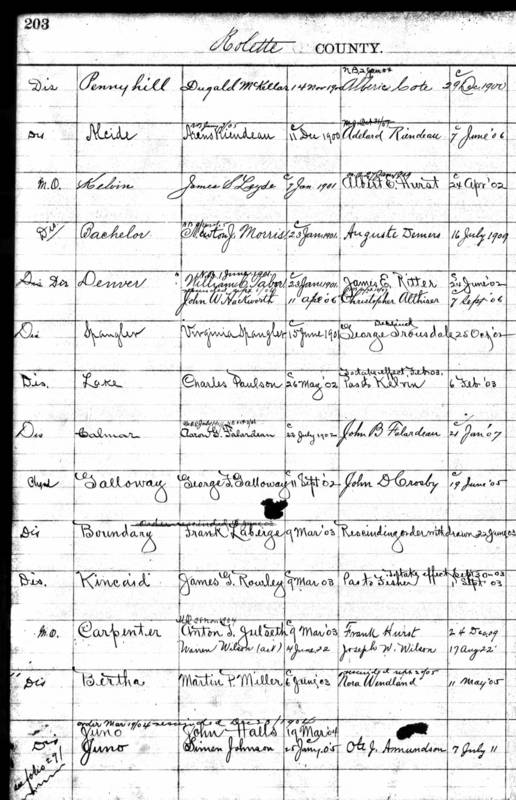 203
Rolette COUNTY.
N.B. 2 Jan 02
Dis Pennyhill Dugald McKellar 14 Nov 1900 Alberic Cote C 29 Dec. 1900
Dis Alcide Kiendeau C 11 Dec 1900 Adelard Riendeau C 7 June '06
M.O. Kelvin James P Loyde C 7 Jan 1901 Albert C. Hurst C 24 Apr '02
Dis Bachelor Newton J. Morris C 23 Jan 1901 Auguste Demers 16 July 1909
N.B. 1 June 1901
Dis Denver William C Tabor C 23 Jan 1901 James E. Ritter C 24 June '02
John W Hackworth 11 Apr '06 Christopher Althiser C 7 Sept '06
Declined
Dis Spangler Virginia Spangler C 15 June 1901 George Trousdale 25 '02
to take effect, Feb 03,
Dis. Lake Charles Paulson C 26 May '02 Pas to Kelvin 6 Feb '03
Dis Calmar Aaron C 22 July 1902 John B Felardeau C 21 Jan '07
Galloway George T. Galloway C 11 Sept '02 John D Crosby C 19 June '05
Dis Boundary Frank Laberge C 9 Mar '03 Rescinding order withdrawn 22 June, 03
to take effect Sept 30-03
Dis. Kincaid James G. Rowley C 9 Mar 03 Pas to Fisher 11 Sept. '03
M.O. Carpenter Anton T. Julseth C 9 Mar '03 Frank Hurst 24 Dec, 09
Warren Wilson (act) 4 June, 22 Joseph W. Wilson 17 Aug 22
Dis Bertha Martin P. Miller C 6 June, 03 Nora Wendland 11 May '05
order Mar 19/04 rescinded Dec 1904
Juno John Halls 19 Mar '04
Dis Juno Simen Johnson C 25 Jany, 05 Ole J. Amundson 7 July 11
see folio 291